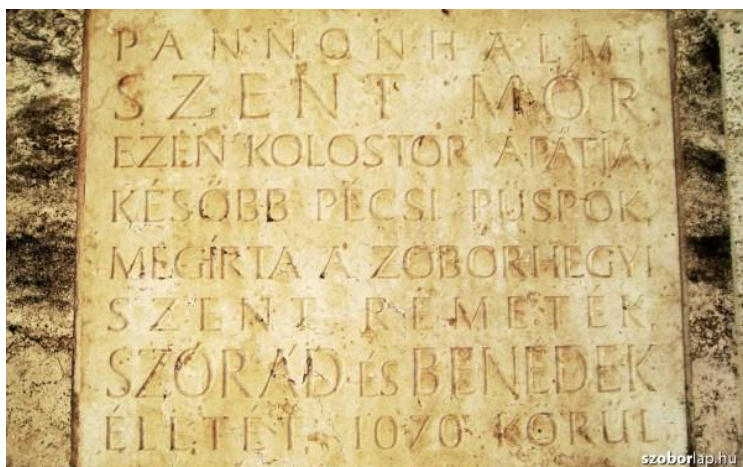 PANNONHALMI
SZENT MÓR
EZEN KOLOSTOR APÁTJA,
KÉSŐBB PÉCSI PÜSPÖK,
MEGÍRTA A ZOBORHEGYI
SZENT REMETÉK,
SZÓRÁD ÉS BENEDEK
ÉLETÉT, 1070 KÖRÜL
szoborlap.hu